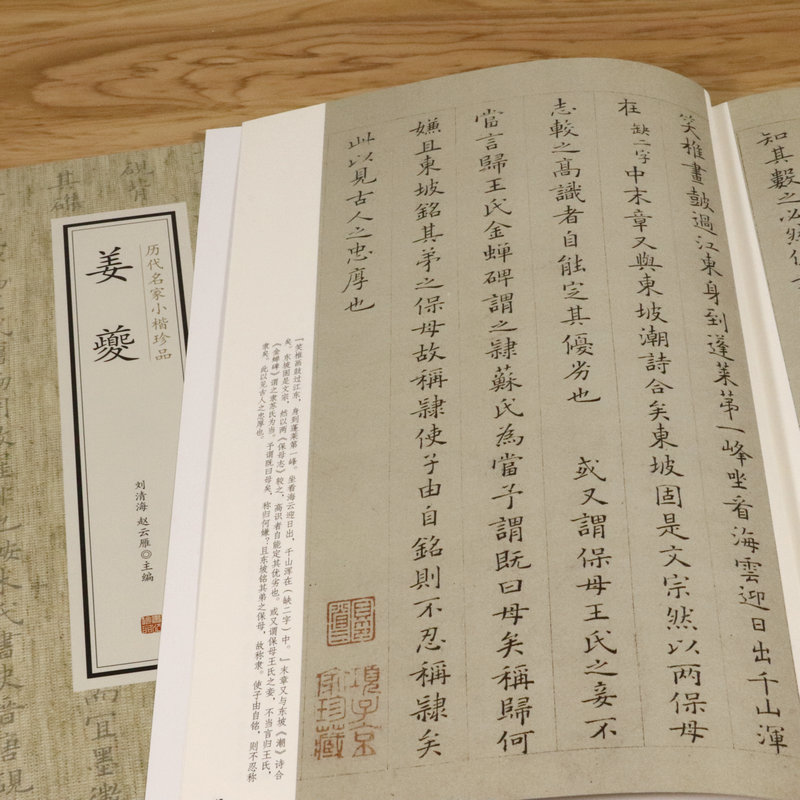 知其數之以
笑椎畫鼓過江東身到蓬萊苐一峰坐看海雲迎日出千山渾
在 缺二字 中末章又與東坡潮詩合矣東坡固是文宗然以两保母
志較之髙識者自能定其優劣也 或又謂保母王氏之妾不
當言歸王氏金蟬碑謂之隷蘇氏為當予謂既曰母矣稱歸何
嫌且東坡銘其弟之保母故稱隷使子由自銘則不忍稱隷矣
此以見古人之忠厚也
項子京
家珍藏
“笑椎画鼓过江东，身到蓬莱第一峰。坐看海云迎日出，千山浑在（缺二字）中。”末章又与东坡《潮》诗合
矣。东坡固是文宗，然以两《保母志》较之，高识者自能定其优劣也。或又谓保母王氏之妾，不当言归王氏，
《金蝉碑》谓之隶苏氏为当。予谓既曰母矣，称归何嫌？且东坡铭其弟之保母，故称隶。使子由自铭，则不忍称
隶矣。此以见古人之忠厚也。
历代名家小楷珍品
姜夔
刘清海 赵云雁◎主编